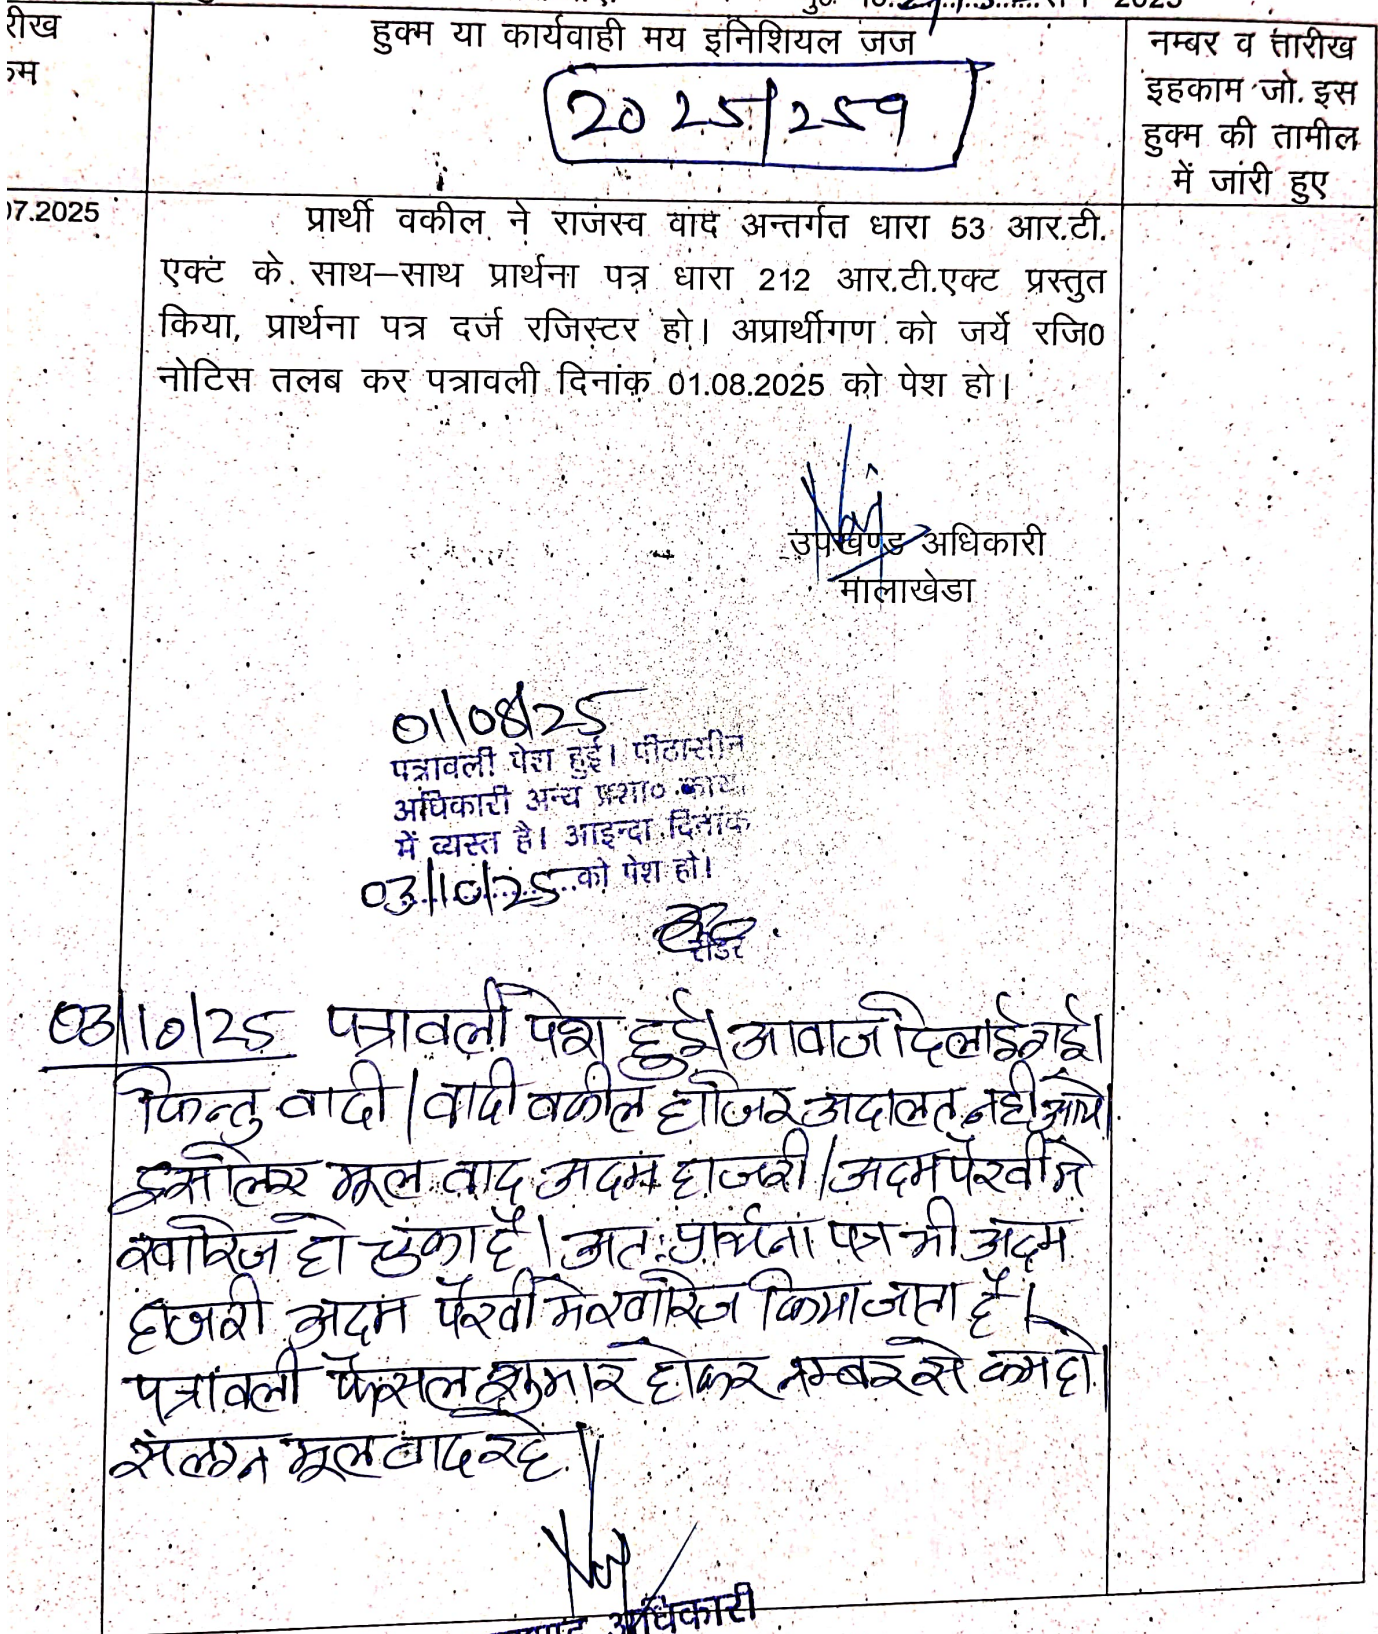 2025
रीख
हुक्म या कार्यवाही मय इनिशियल जज
नम्बर व तारीख
इहकाम जो इस
हुक्म की तामील
में जारी हुए
2025/259
07.2025
प्रार्थी वकील ने राजस्व वाद अन्तर्गत धारा 53 आर.टी.
एक्ट के साथ–साथ प्रार्थना पत्र धारा 212 आर.टी.एक्ट प्रस्तुत
किया, प्रार्थना पत्र दर्ज रजिस्टर हो। अप्रार्थीगण को जर्ये रजि0
नोटिस तलब कर पत्रावली दिनांक 01.08.2025 को पेश हो।
उपखण्ड अधिकारी
मालाखेडा
01/08/25
पत्रावली पेश हुई। पीठासीन
अधिकारी अन्य प्रशा० कार्य
में व्यस्त है। आइन्दा दिनांक
03/10/25 को पेश हो।
रीडर
03/10/25 पत्रावली पेश हुई। आवाज दिलाई गई।
किन्तु वादी/वादी वकील हाजिर अदालत नही आये।
इसलिए मूल वाद अदम हाजरी/अदम पैरवी मे
खारिज हो चुका है। अतः प्रार्थना पत्र भी अदम
हाजरी अदम पैरवी मे खारिज किया जाता है।
पत्रावली फैसल शुमार होकर नम्बर से कम हो।
संलग्न मूल वाद रहे।
अधिकारी